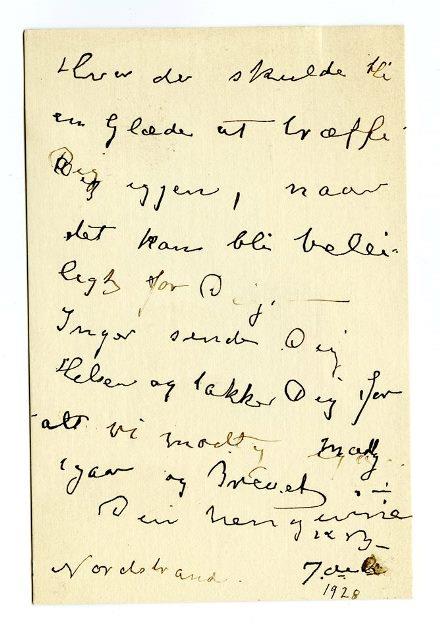 Hvor det skulde bli
en Glæde at træffe
Dig igjen, naar
det kan bli belei-
ligt for Dig. —
Inger sender Dig
Hilsen og takker Dig for
alt vi modtog
igaar og Brevet
Din hengivne
Nordstrand.
1928